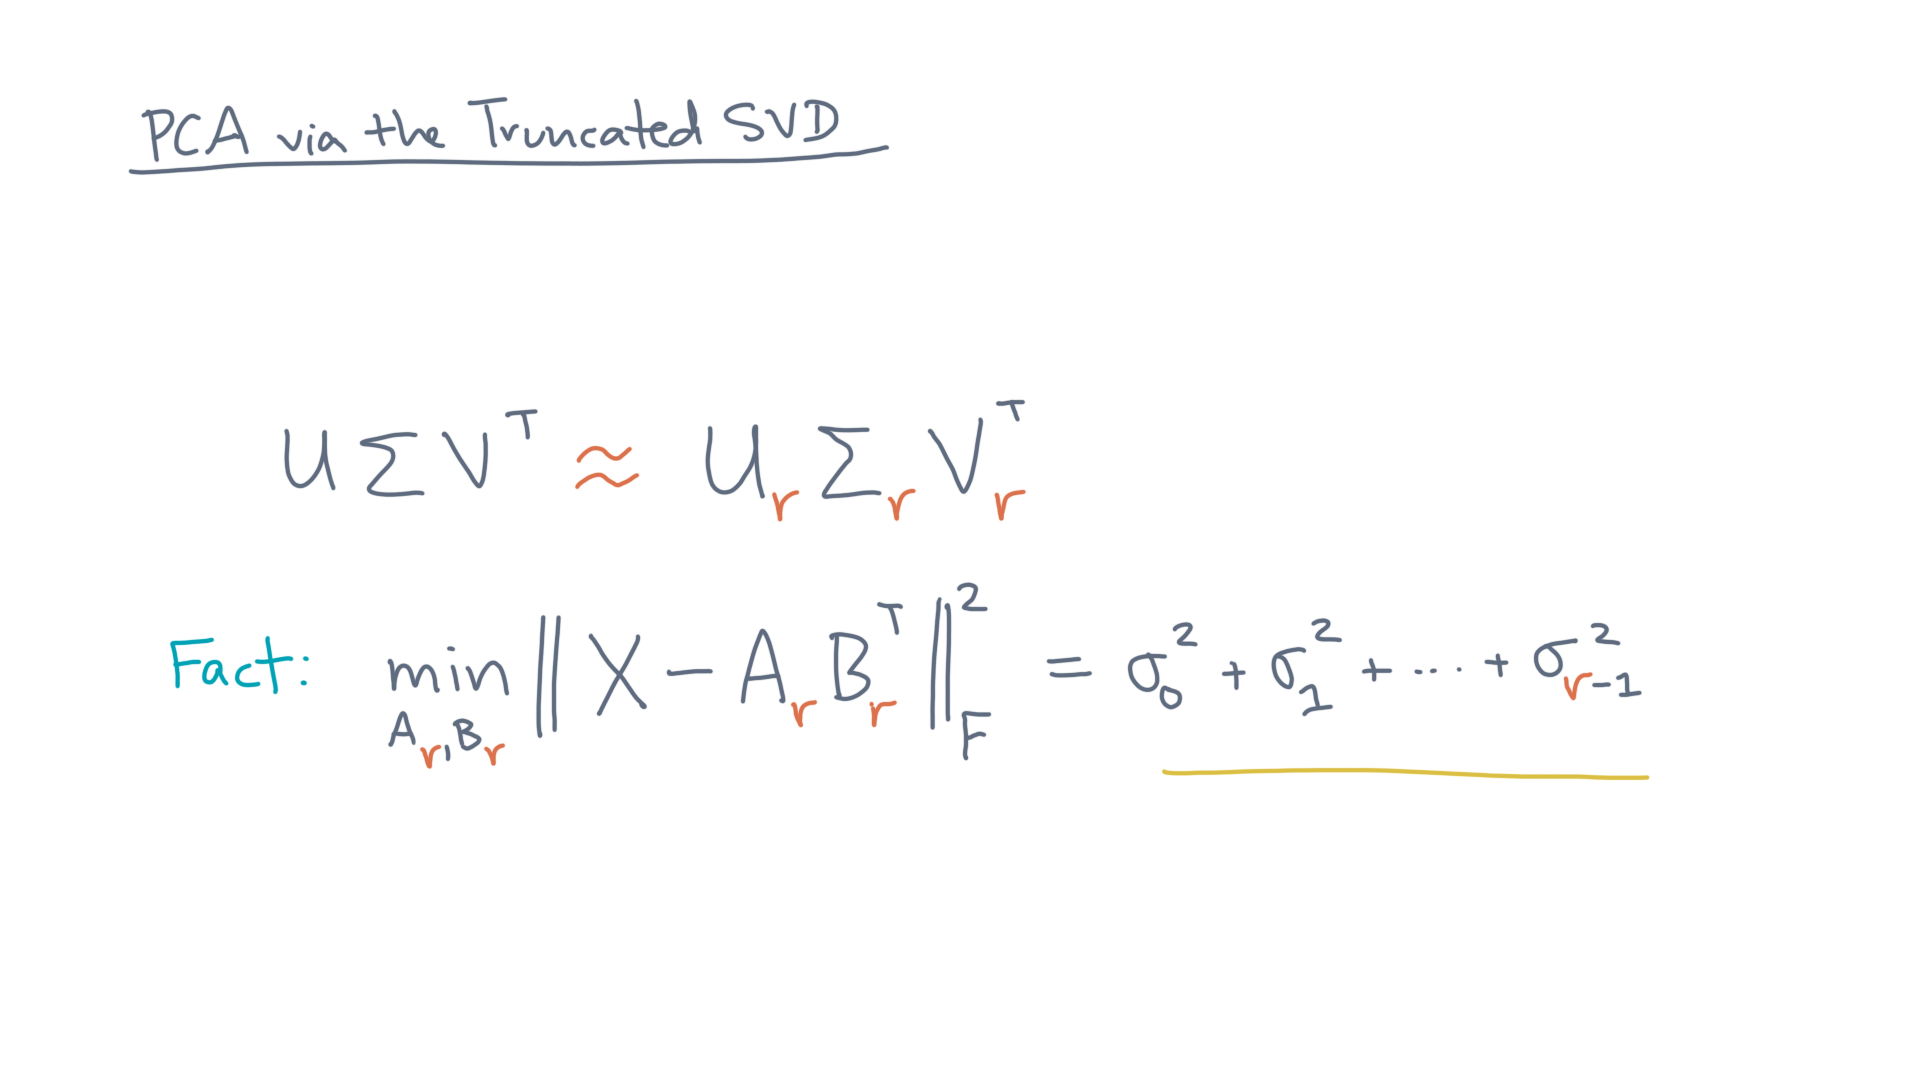 PCA via the Truncated SVD
U Σ V^T ≈ U_r Σ_r V_r^T
Fact: min_{A_r, B_r} ‖ X − A_r B_r^T ‖_F^2 = σ_0^2 + σ_1^2 + ... + σ_{r-1}^2